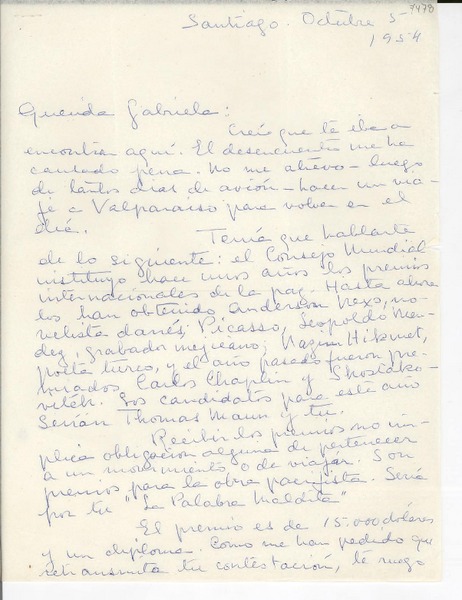 7478
Santiago. Octubre 5-
1954
Querida Gabriela:
Creí que te iba a
encontrar aquí. El desencuentro me ha
causado pena. No me atrevo - luego
de tantos días de avión - hacer un via-
je a Valparaíso para volver en el
día.
Tenía que hablarte
de lo siguiente: el Consejo Mundial
instituyó hace unos años los premios
internacionales de la paz. Hasta ahora
los han obtenido Anderson Nexo, no-
velista danés, Picasso, Leopoldo Men-
dez, grabador mejicano; Nazim Hikmet,
poeta turco, y el año pasado fueron pre-
miados Carlos Chaplin y Shostako-
vitch. Los candidatos para este año
serían Thomas Mann y tú.
Recibir los premios no im-
plica obligación alguna de pertenecer
a un movimiento, o de viajar. Son
premios para la obra pacifista. Sería
por tu "La Palabra Maldita"
El premio es de 15.000 dólares
y un diploma. Como me han pedido que
retransmita tu contestación, te ruego